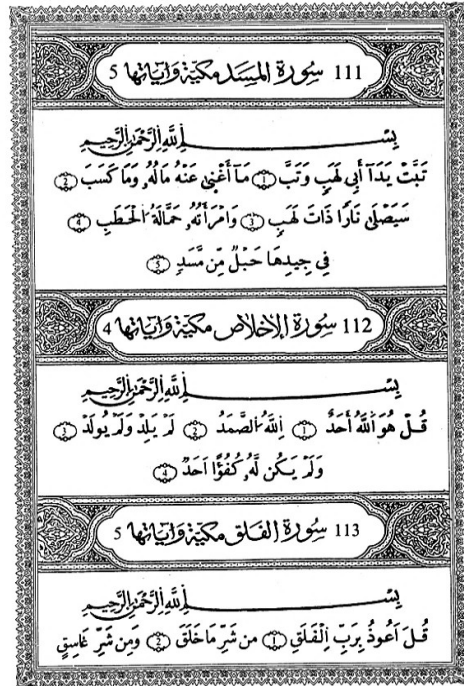 111 سورة المسد مكية وءاياتها 5
بِسْــــمِ اِللَّهِ اِلرَّحْمَٰنِ اِلرَّحِيمِ
تَبَّتْ يَدَآ أَبِي لَهَبٍ وَتَبَّ ① مَآ أَغْنَىٰ عَنْهُ مَالُهُۥ وَمَا كَسَبَ ②
سَيَصْلَىٰ نَارًا ذَاتَ لَهَبٍ ③ وَامْرَأَتُهُۥ حَمَّالَةُ اُلْحَطَبِ ④
فِي جِيدِهَا حَبْلٌ مِّن مَّسَدٍ ⑤
112 سورة الإخلاص مكية وءاياتها 4
بِسْــــمِ اِللَّهِ اِلرَّحْمَٰنِ اِلرَّحِيمِ
قُلْ هُوَ اَللَّهُ أَحَدٌ ① اِللَّهُ اُلصَّمَدُ ② لَمْ يَلِدْ وَلَمْ يُولَدْ ③
وَلَمْ يَكُن لَّهُۥ كُفُؤًا اَحَدٌ ④
113 سورة الفلق مكية وءاياتها 5
بِسْــــمِ اِللَّهِ اِلرَّحْمَٰنِ اِلرَّحِيمِ
قُلَ اَعُوذُ بِرَبِّ اِلْفَلَقِ ① مِن شَرِّ مَا خَلَقَ ② وَمِن شَرِّ غَاسِقٍ